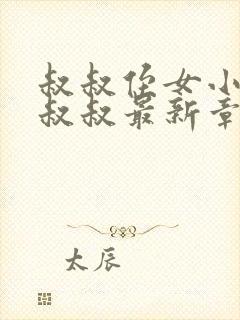 叔叔侄女小
叔叔最新章
太辰